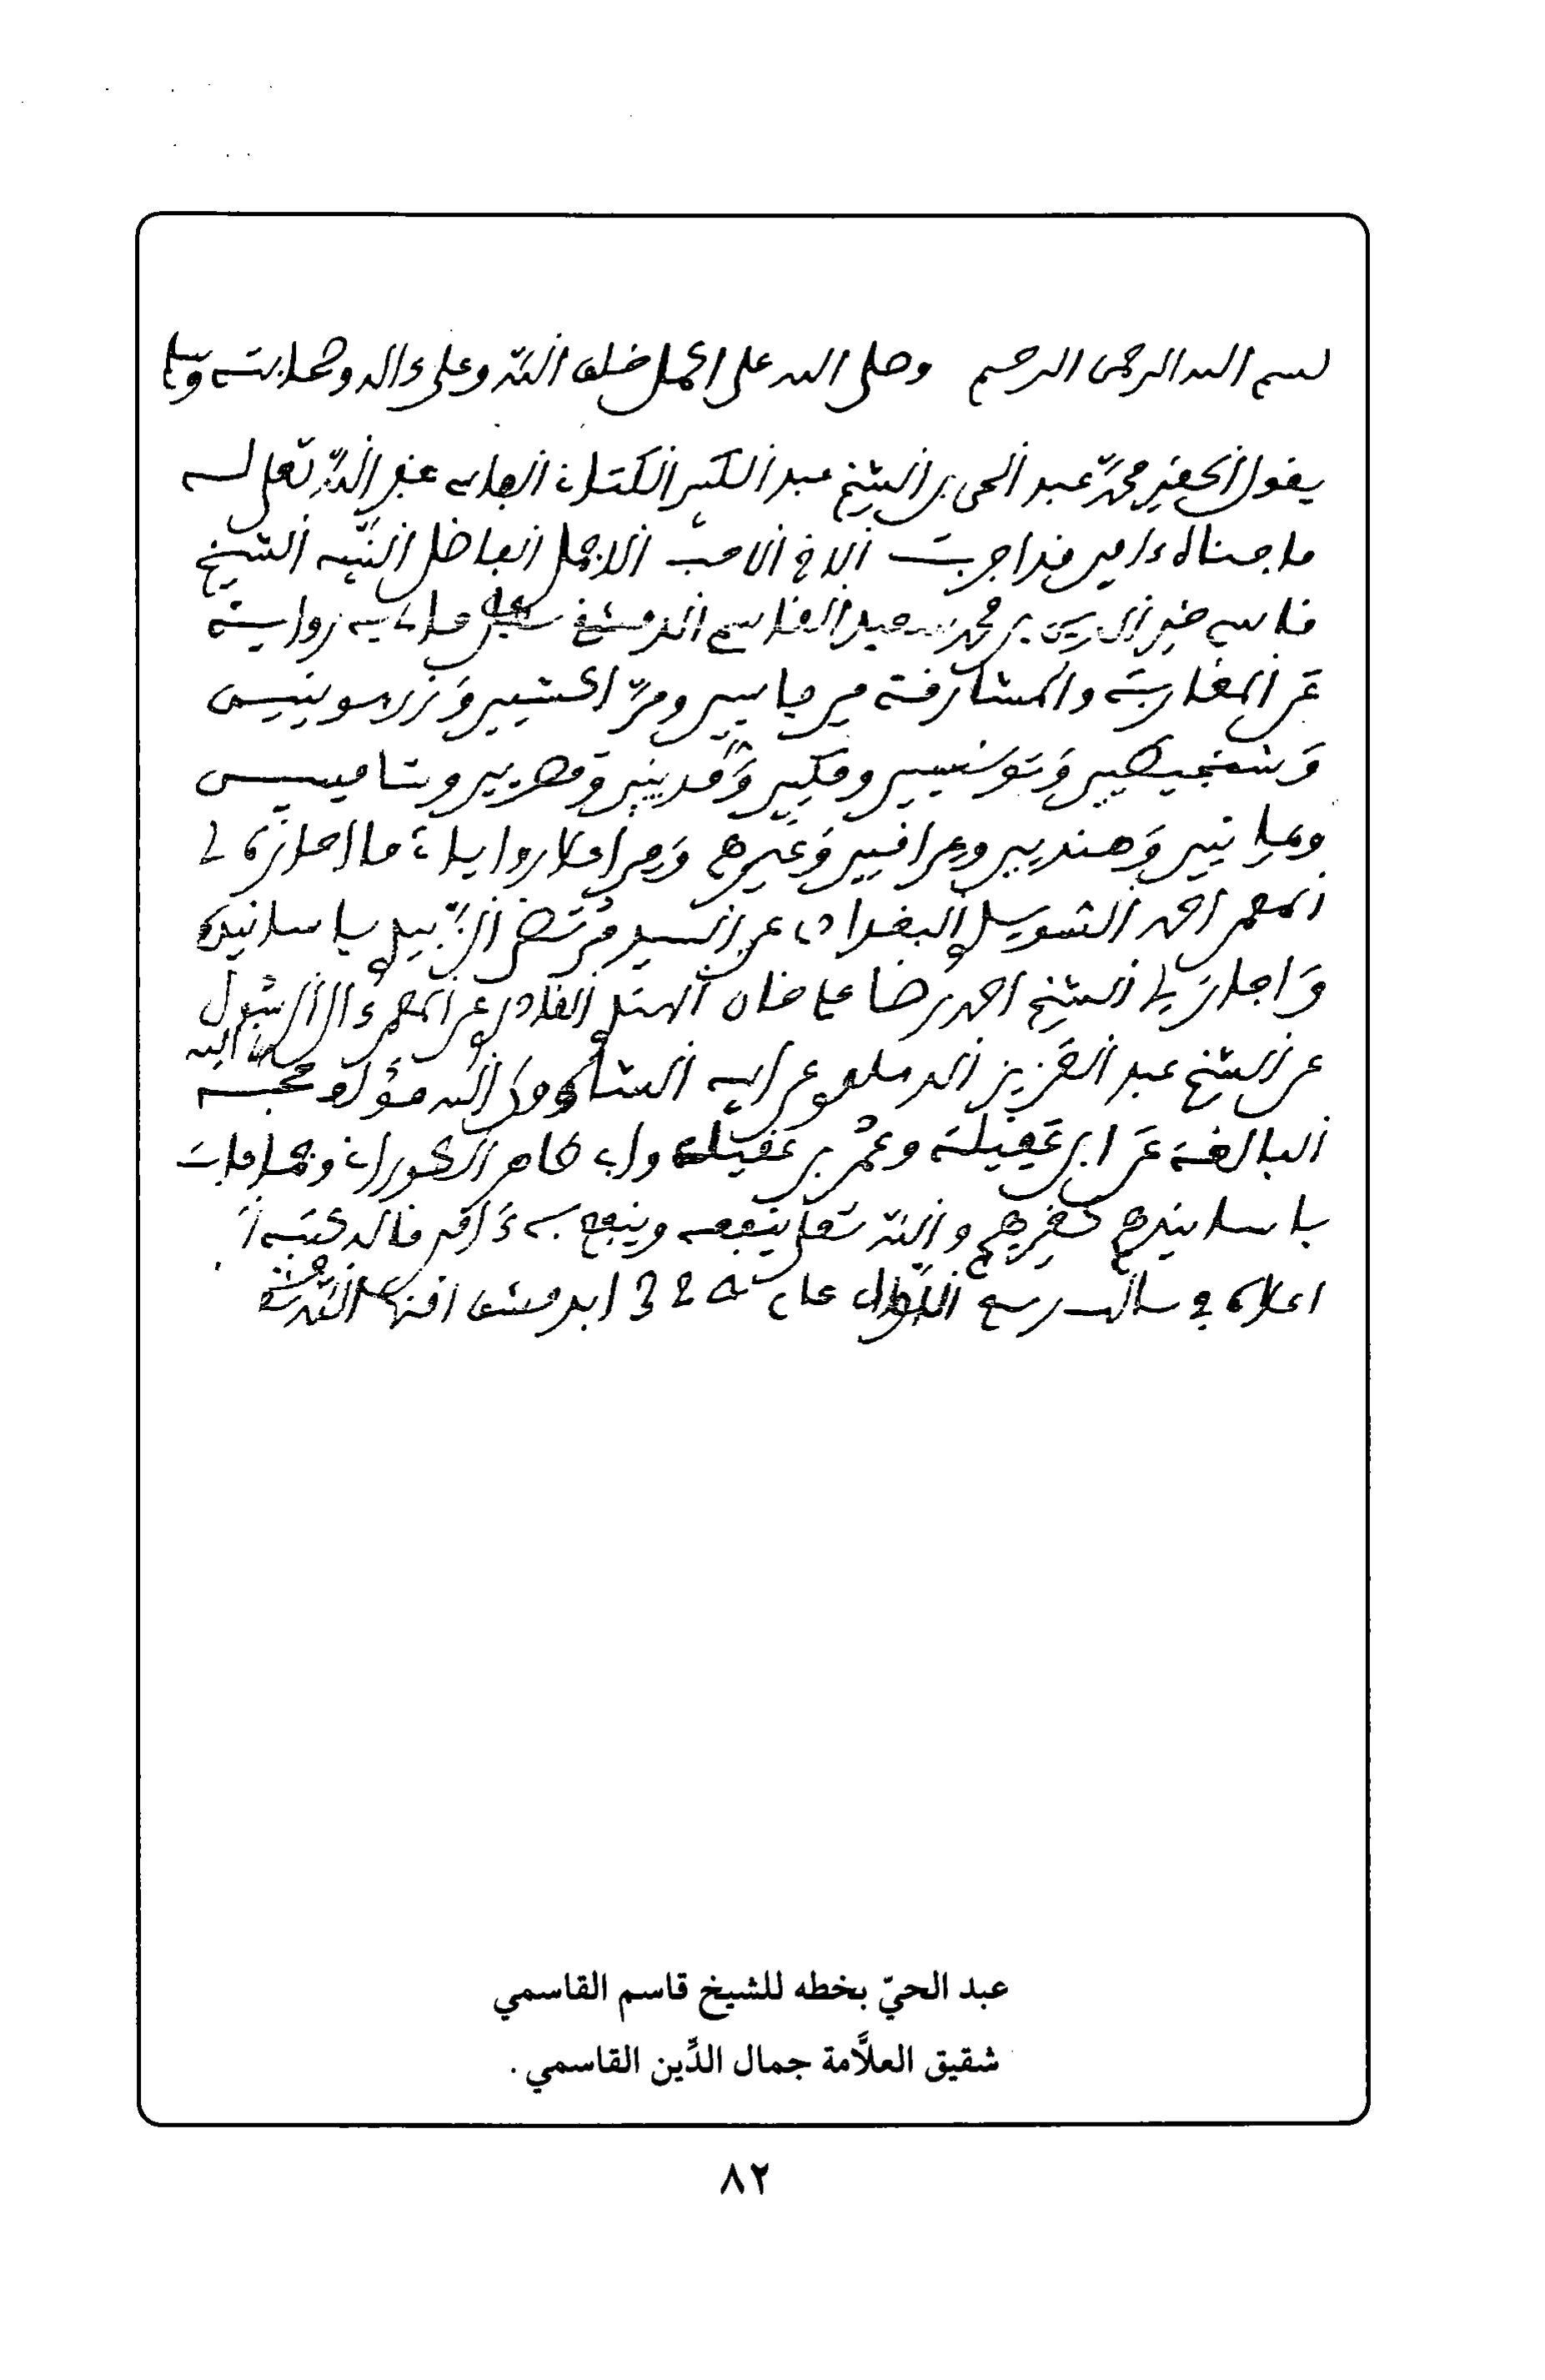 بسم الله الرحمن الرحيم وصلى الله على اكمل خلق الله وعلى ءاله وصحابته وسلم
يقول الحقير محمد عبد الحي بن الشيخ عبد الكبير الكتاني الفاسي غفر الله تعلى له
ما جناه ءامين قد اجزت الاخ الاحب الاجل الفاضل النبيه الشيخ
قاسم خير الدين بن محمد سعيد القاسمي الدمشقي بكل مالي به رواية
عن المغاربة والمشارقة من فاسيين ومراكشيين وزرهونيين
وشنجيطيين وتونسيين ومكيين ومدنيين ومصريين وشاميين
ويمانيين وهنديين وعراقيين وغيرهم ومن اعلا رواياتي ما اجازني
المعمر احمد السويدي البغدادي عن السيد مرتضى الزبيدي باسانيده
واجازني الشيخ احمد رضا علي خان الهندي القادري عن المعمر ءال الرسول
عن الشيخ عبد العزيز الدهلوي عن ابيه الشاه ولي الله مؤلف حجة الله
البالغة عن ابن عقيلة وعمر بن عقيل وابي طاهر الكوراني وهما مات
باسانيدهم كغيرهم والله تعلى ينفعه وينفع به ءامين قاله كتبه
اعلاه في سالف ربيع الاول عام 1324 بدمشق امنها الله
عبد الحيّ بخطه للشيخ قاسم القاسمي
شقيق العلاَّمة جمال الدِّين القاسمي .
٨٢